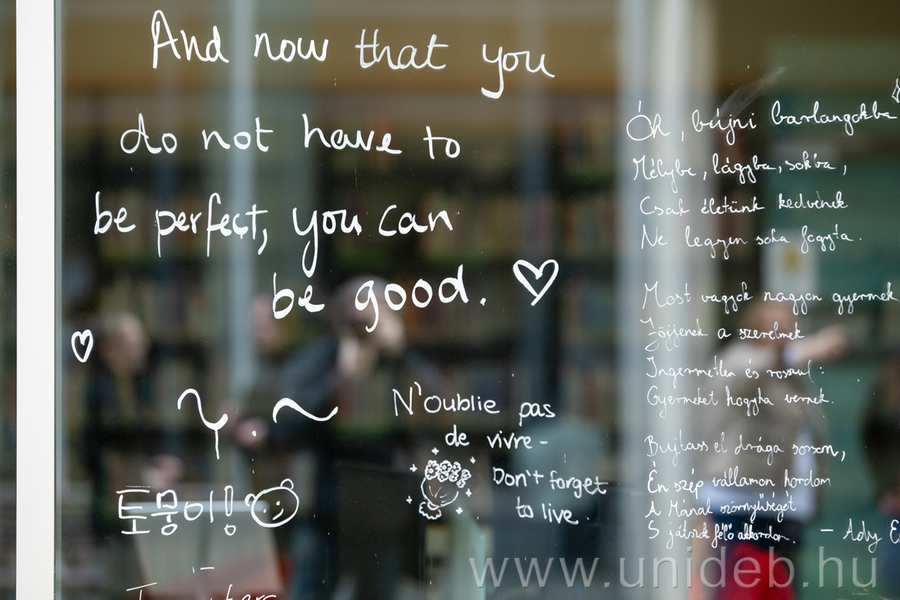 And now that you
do not have to
be perfect, you can
be good.
N'oublie pas
de vivre -
Don't forget
to live.
토뭉이!
Óh, bújni barlangokba
Mélybe, lágyba, sokba,
Csak életünk kedvének
Ne legyen soha fogyta.
Most vagyok nagyon gyermek
Jöjjenek a szerelmek
Ingermetlen és rosszul:
Gyermeket hogyha vernek.
Bujtass el drága sorsom,
Én szép vállamon hordom
A Mának szörnyűségét
S játszok félő akkordon. - Ady E
www.unideb.hu